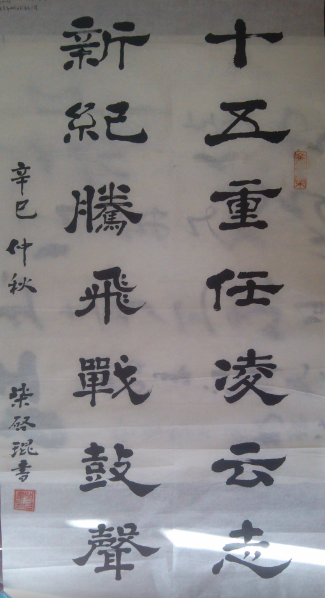 十五重任凌云志
新紀騰飛戰鼓聲
辛巳仲秋
柴啓琨書